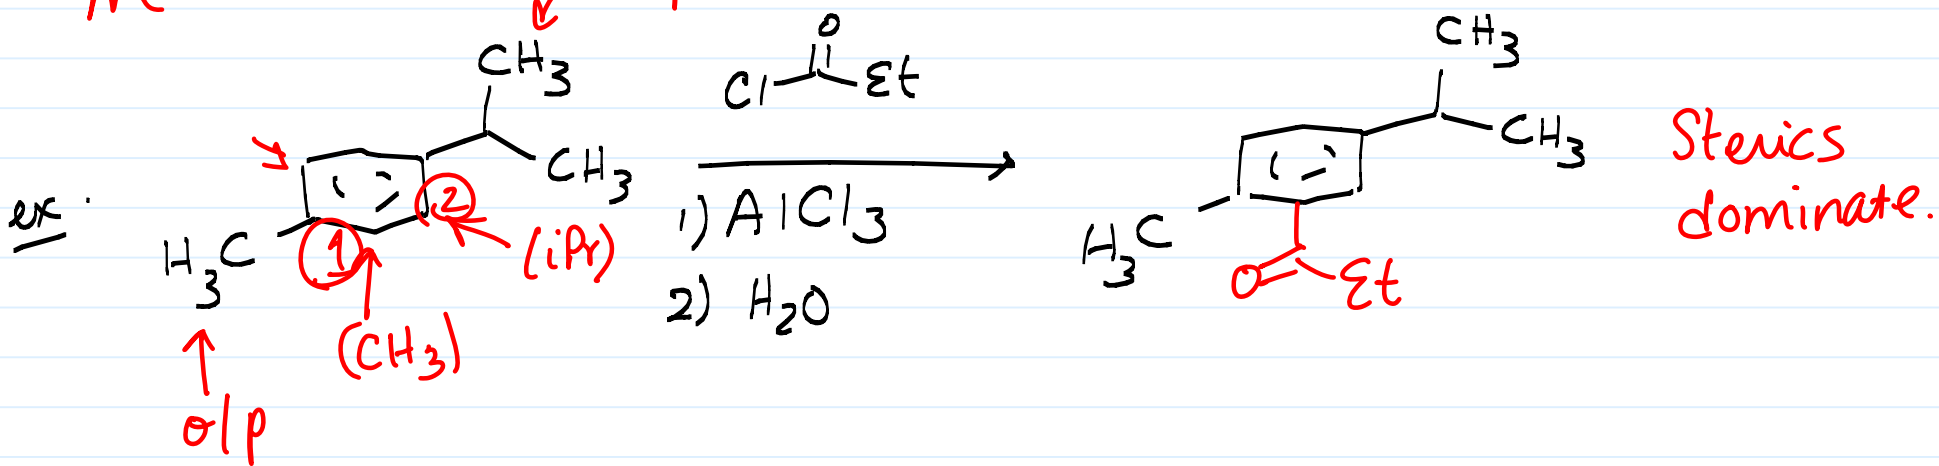 CH3
CH3
ex.
H3C
1
2
(iPr)
(CH3)
o/p
O
Cl
Et
1) AlCl3
2) H2O
CH3
CH3
H3C
O
Et
Sterics
dominate.